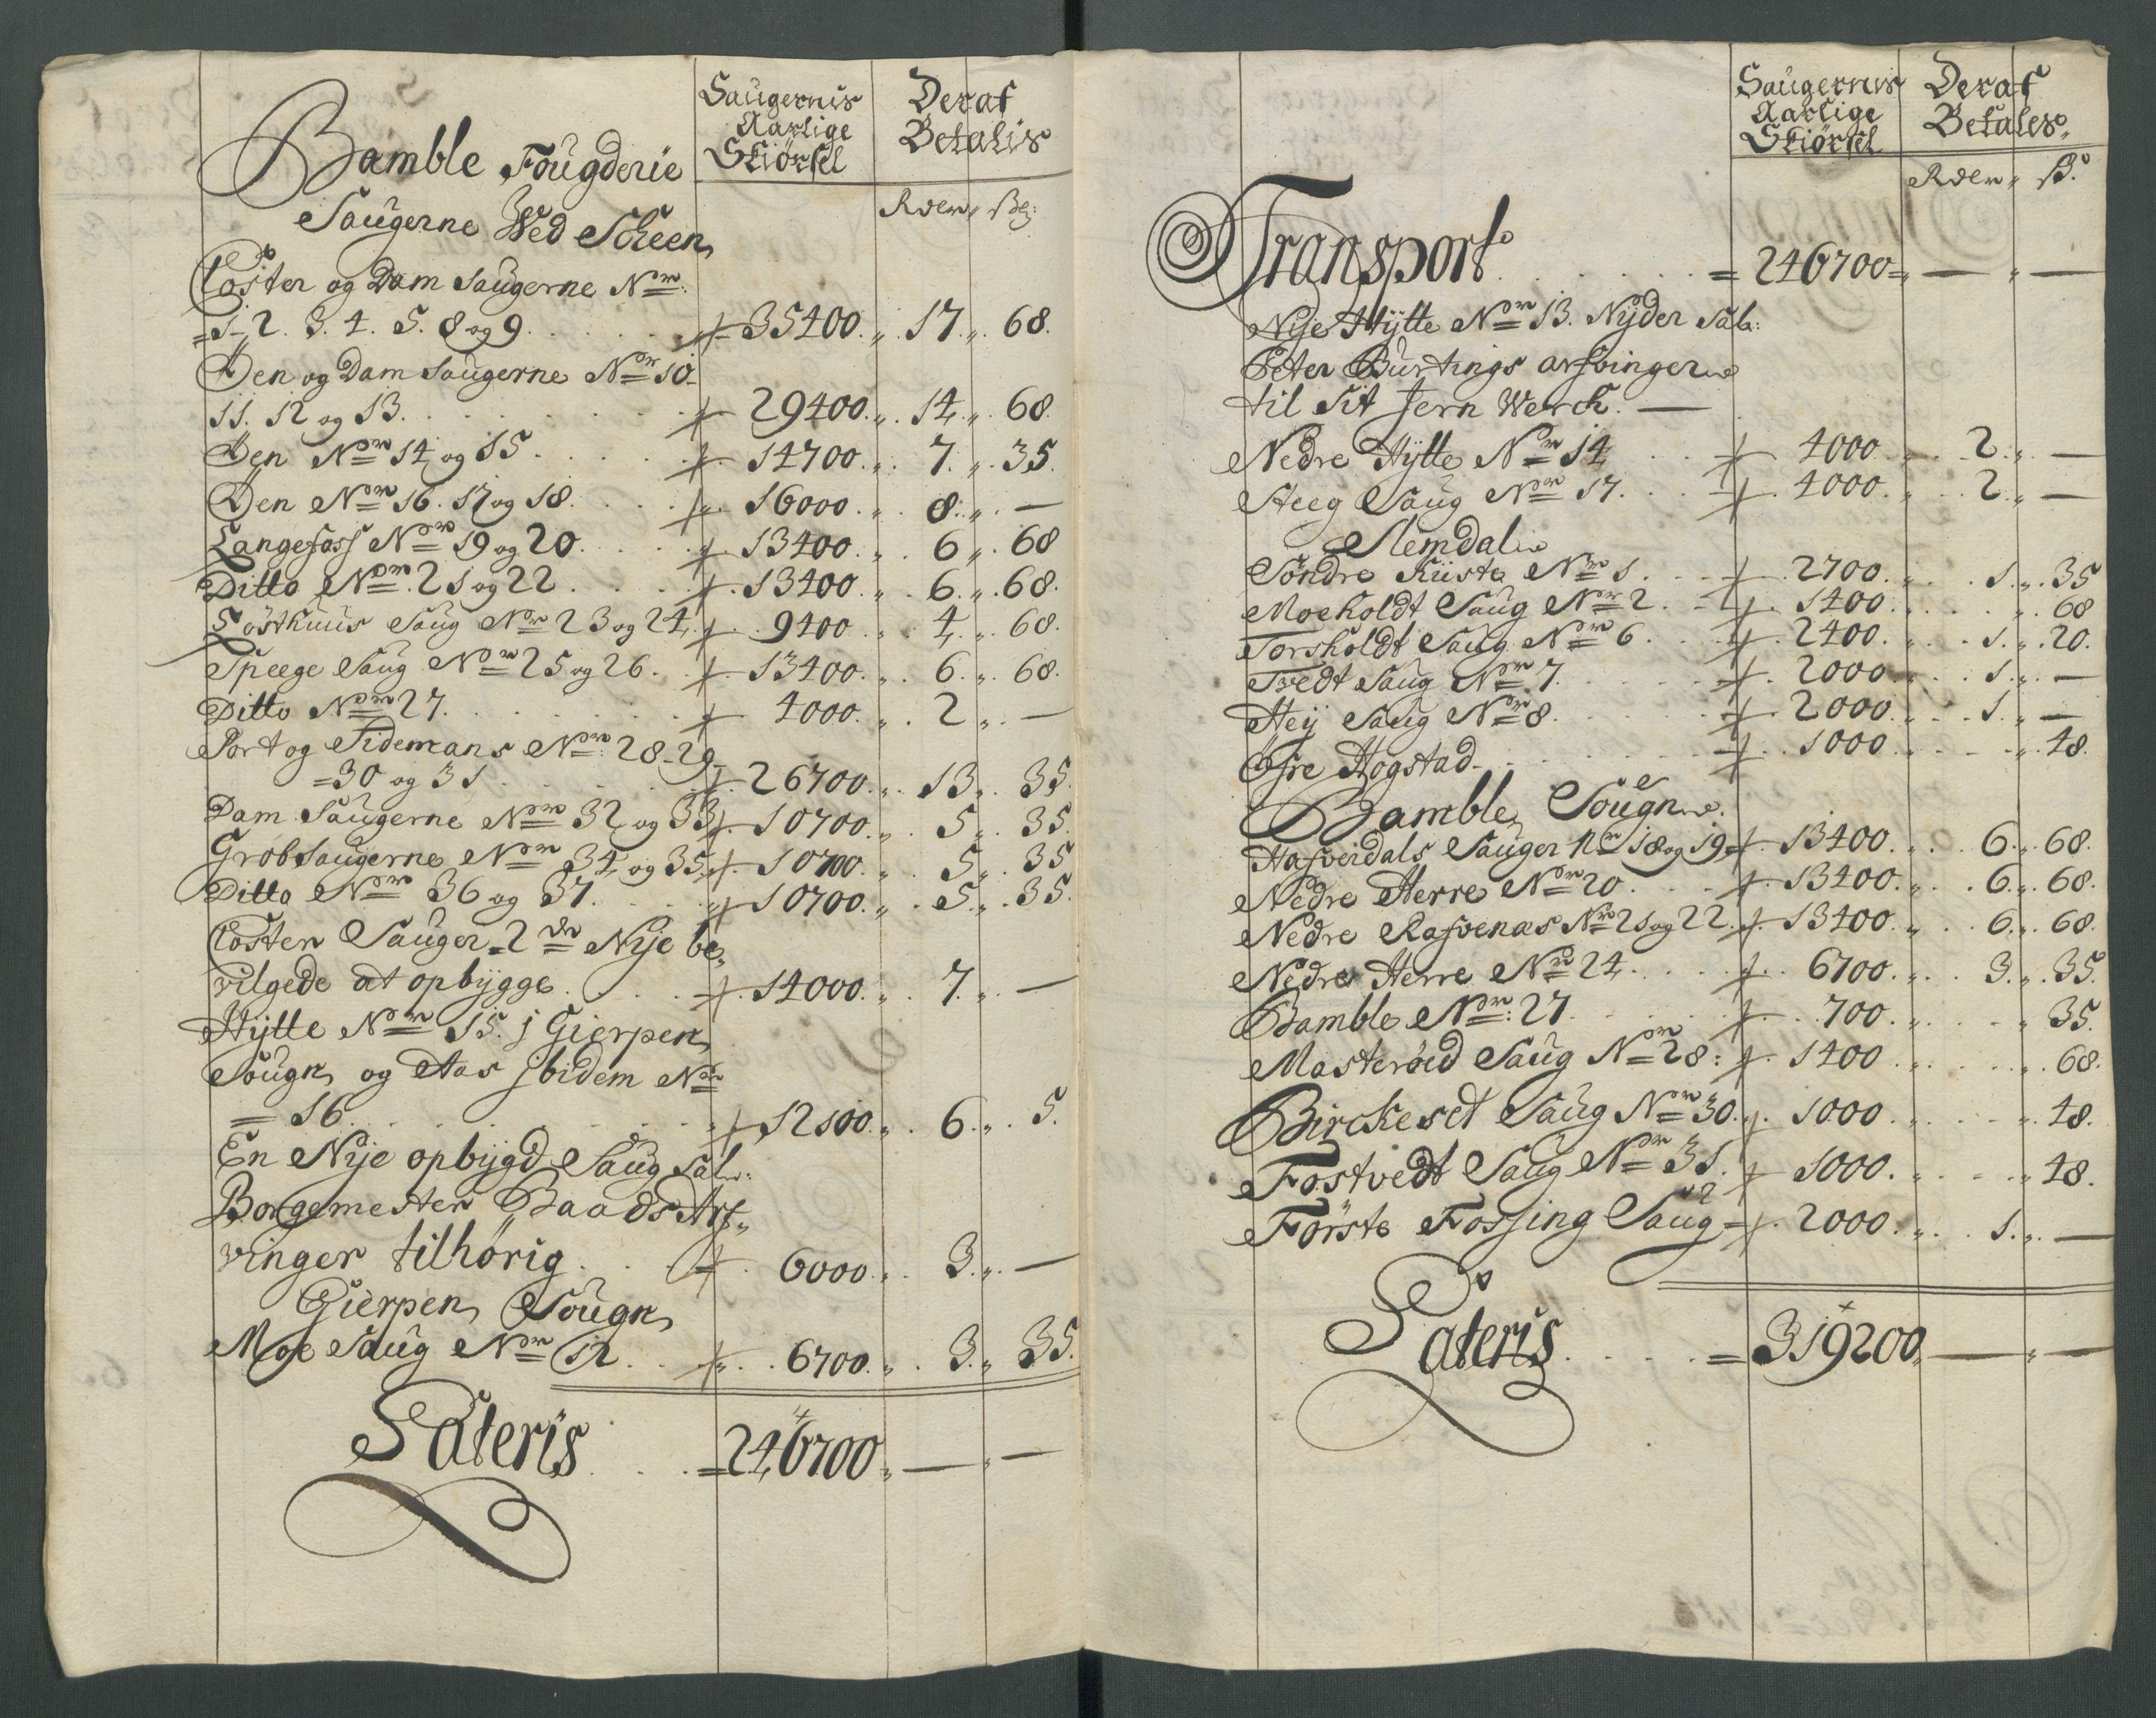 Saugernis Deraf
Aarlige Betalis
Skiörsel
Bamble Fougderie
Rder ß
Saugerne Wed Scheen
Closter og Dam Saugerne Nr:
=1. 2. 3. 4. 5. 8 og 9. 35400. 17. 68.
Den og Dam Saugerne Nr 10
11. 12 og 13. 29400. 14. 68.
Den Nr 14 og 15. 14700. 7. 35.
Den Nr 16. 17 og 18. 16000. 8. —
Langefoss Nr 19 og 20. 13400. 6. 68
Ditto Nr. 21 og 22. 13400. 6. 68.
Saug Nr 23 og 24. 9400 4. 68.
Speege Saug Nr 25 og 26. 13400. 6. 68.
Ditto Nr 27. 4000. 2 —
Port og Tidemans Nr: 28. 29
=30 og 31 26700. 13. 35.
Dam Saugerne Nr 32 og 33 10700. 5. 35.
Grobsaugerne Nr 34 og 35. 10700. 5. 35
Ditto Nr 36 og 37. 10700. 5. 35.
Closter Sauger 2de Nye be
vilgede at opbygge. 14000. 7. —
Hytte Nr 15. j Gierpen
Sougn og Aas jbidem Nr
=16. 12100. 6. 5.
En Nye opbygd Saug Sal:
Borgemester Baads Arf
vinger tilhörig. 6000. 3. —
Gierpen Sougn
Moe Saug Nr 12. 6700. 3. 35.
Lateris = 246700 — —
Saugernis Deraf
Aarlige Betales
Skiörsel
Rder ß.
Transport = 246700 — —
Nye Hytte Nr 13. Nyder Sal:
Peter Burtings arfvinger
til Sit Jern Werck. —
Nedre Hytte Nr 14 4000 2. —
Heeg Saug Nr 17. 4000. 2. —
Slemdal
Söndre Kiiste Nr 1. 2700. 1. 35
Moeholdt Saug Nr 2. 1400. 68
Torsholdt Saug Nr 6. 2400. 1. 20.
Tvedt Saug Nr. 7. 2000 1. —
Heij Saug Nr 8. 2000. 1. —
Öfre Hogstad. 1000 48.
Bamble Sougn.
Hafverdals Sauger Nr 18 og 19 13400. 6. 68.
Nedre Herre Nr 20. 13400. 6. 68.
Nedre Rafvenas Nr 21 og 22. 13400. 6. 68.
Nedre Herre Nr 24. 6700. 3. 35.
Bamble Nr: 27. 700. 35.
Masteröed Saug Nr 28: 1400 68.
Birckeset Saug Nr 30. 1000 48.
Fostvedt Saug Nr 31. 1000. 48.
Förste Fossing Saug 2000. 1. —
Lateris = 319200 — —